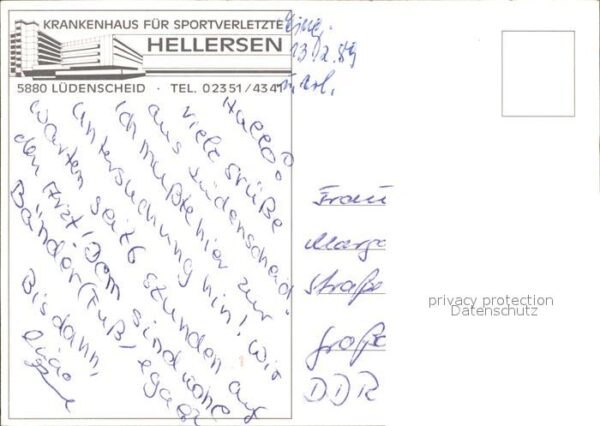 KRANKENHAUS FÜR SPORTVERLETZTE
HELLERSEN
5880 LÜDENSCHEID · TEL. 02351/4341
Eing.
13.2.89
Hallo!
viele Grüße
aus Lüdenscheid.
Ich mußte hier zur
Untersuchung hin! Wir
warten seit 6 Stunden auf
den Arzt! Dem sind wohl
Bänder (Fuß) egal
Bis dann,
Frau
Marga
Straße
Große
DDR
privacy protection
Datenschutz